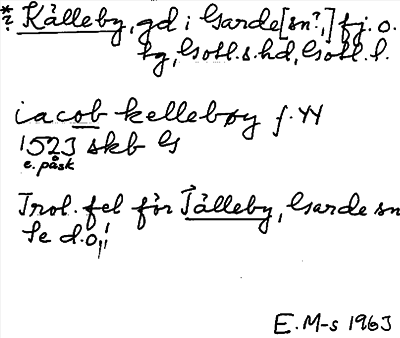 *? Kålleby, gd i Garde [sn?,] fj. o.
hg, Gotl. s. hd, Gotl. l.
iacob kellebøy f. 44
1523 skb G
e. påsk
Trol. fel för Tålleby, Garde sn
Se d.o.!
E. M-s 1963